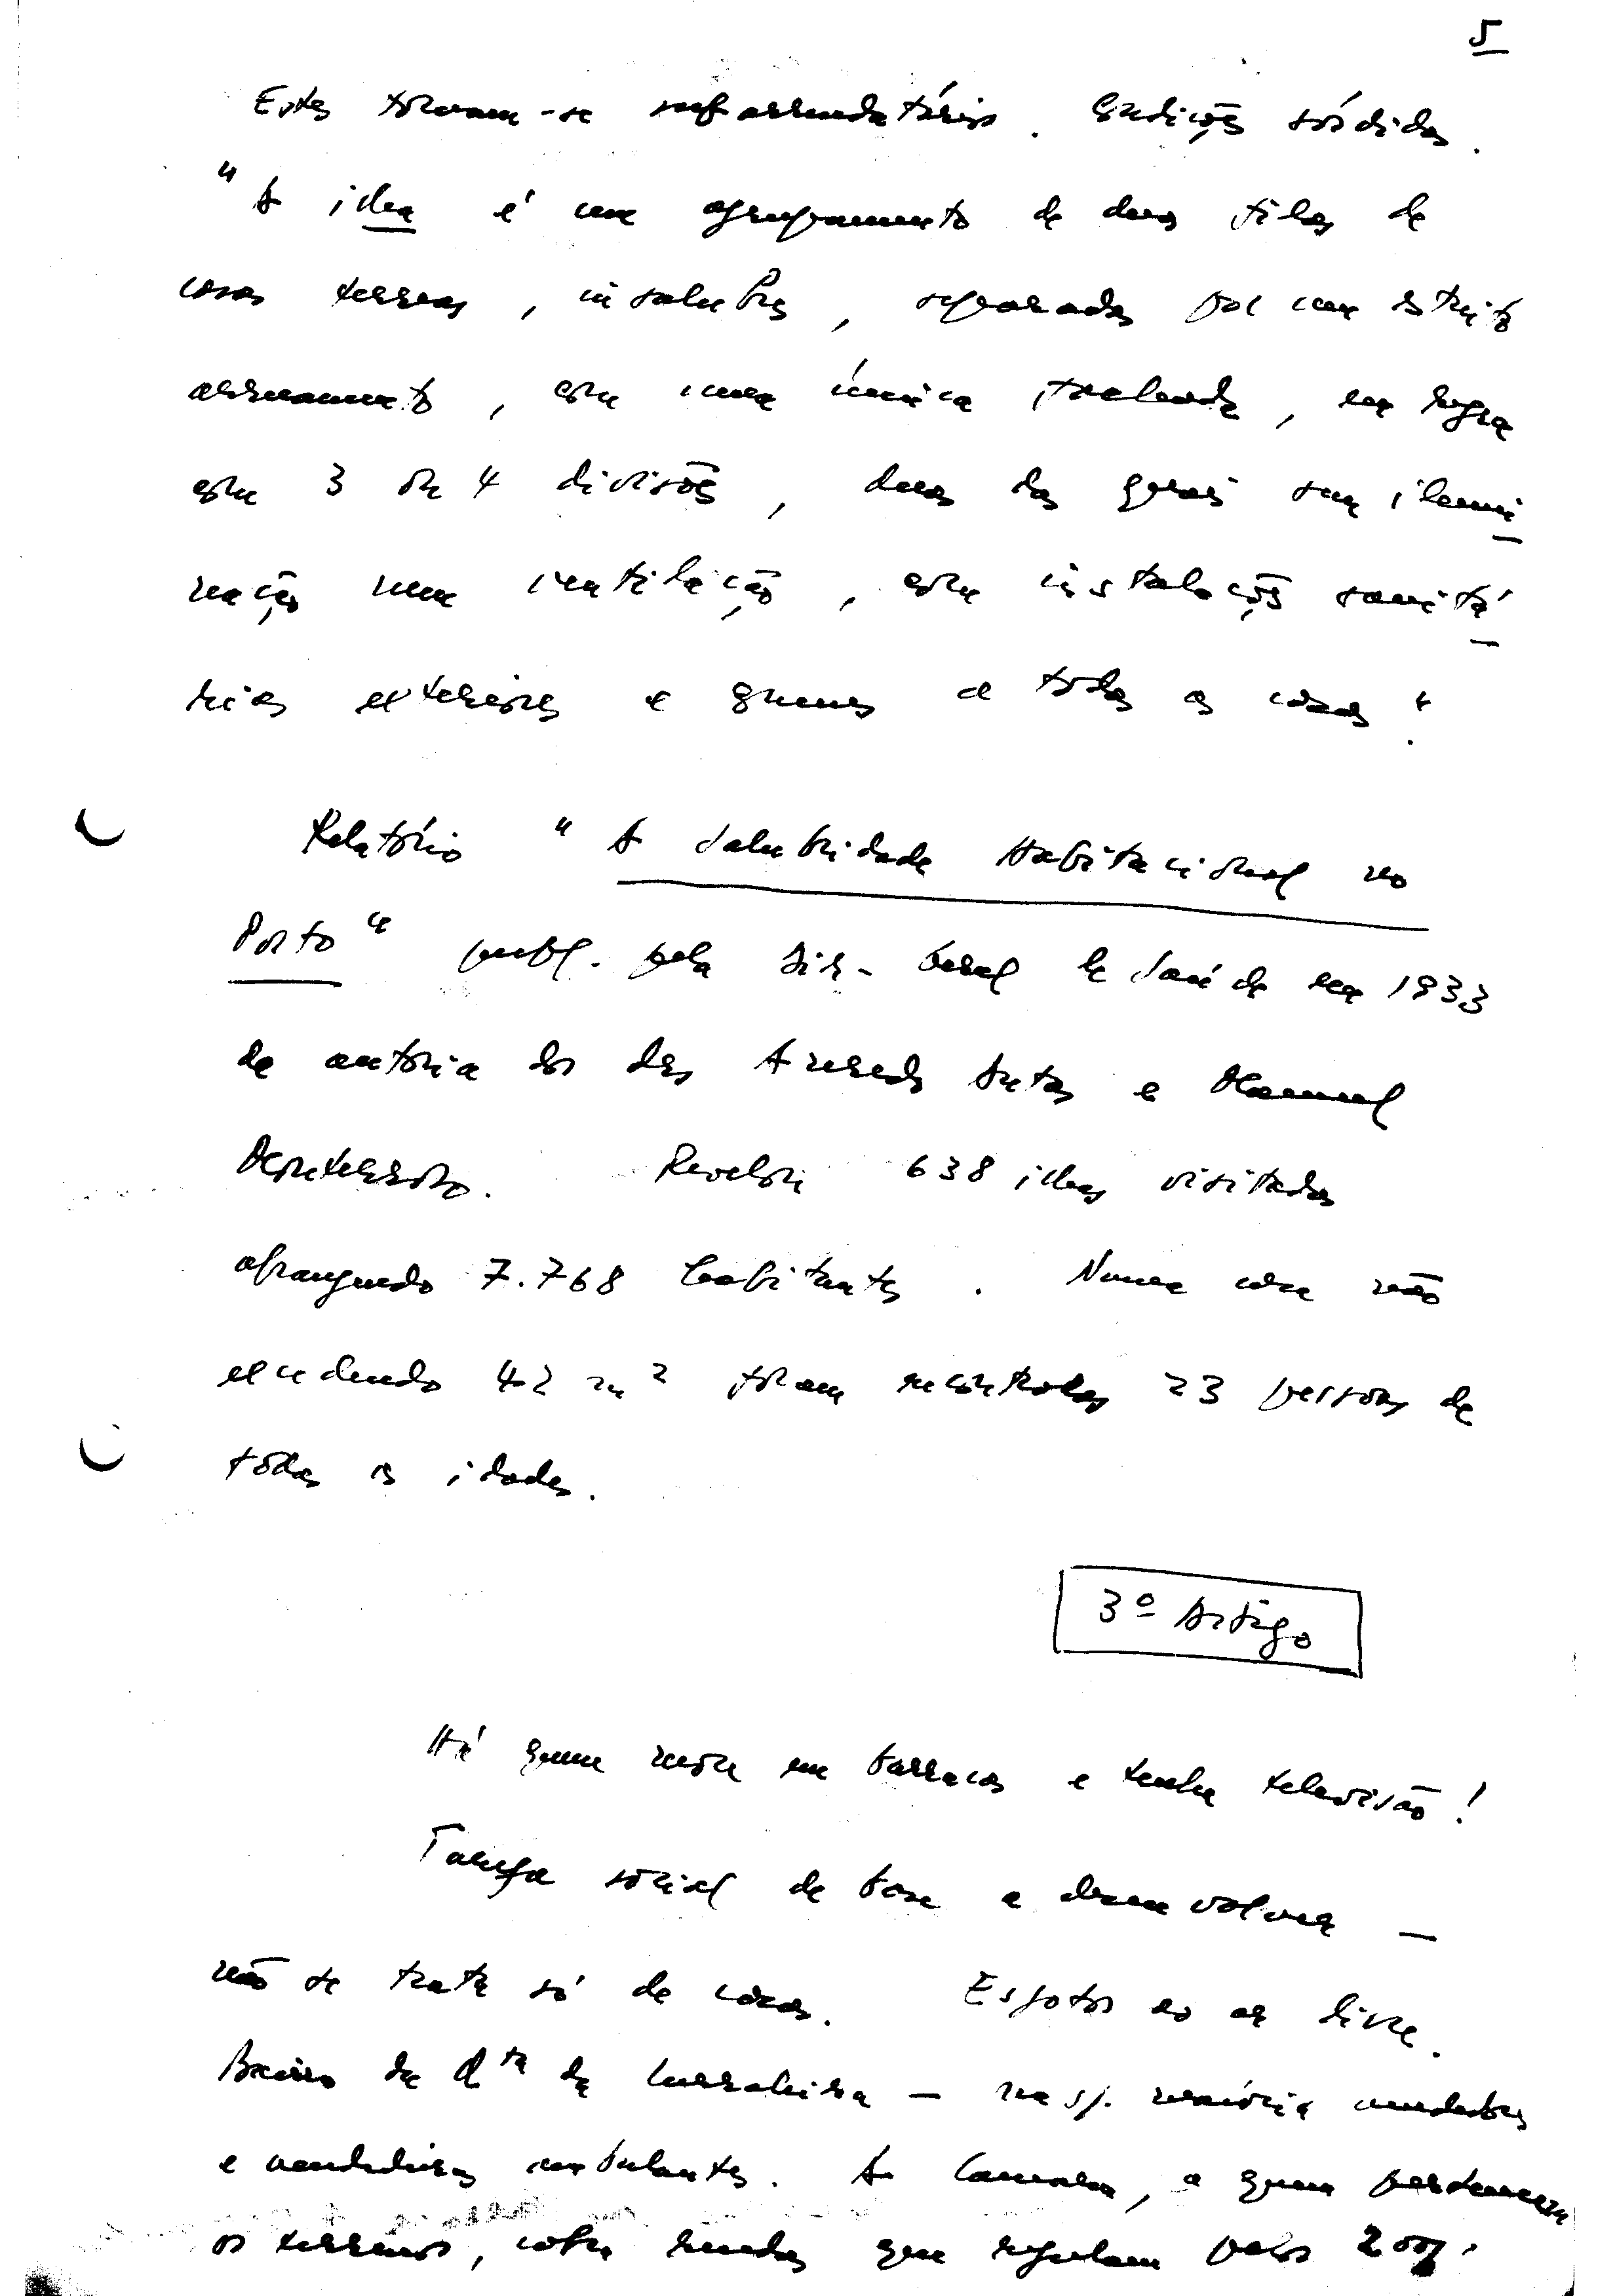 5
Estes tornam-se subarrendatários. Condições sórdidas.
"A ilha é um agrupamento de duas filas de
casas térreas, insalubres, separadas por um estreito
arruamento, com uma única fachada, em regra
com 3 ou 4 divisões, duas das quais sem ilumi
nação nem ventilação, com instalações sanitá
rias exteriores e comuns a todas as casas".
Relatório "A Salubridade Habitacional no
Porto" publ. pela Dir. Geral de Saúde em 1933
de autoria dos drs Azeredo Antas e Manuel
Monterroso. Revelou 638 ilhas visitadas
abrangendo 7.768 habitantes. Numa casa não
excedendo 42 m² foram encontradas 23 pessoas de
todas as idades.
3º Artigo
Há quem more em barracas e tenha televisão!
Tarefa social de base a desenvolver —
não se trata só de casas. Esgotos ao ar livre.
Bairro da Qta da Curraleira — na s/. maioria vendedores
e vendedeiras ambulantes. A Camara, a quem pertencem
os terrenos, cobra rendas que regulam pelos 200$.